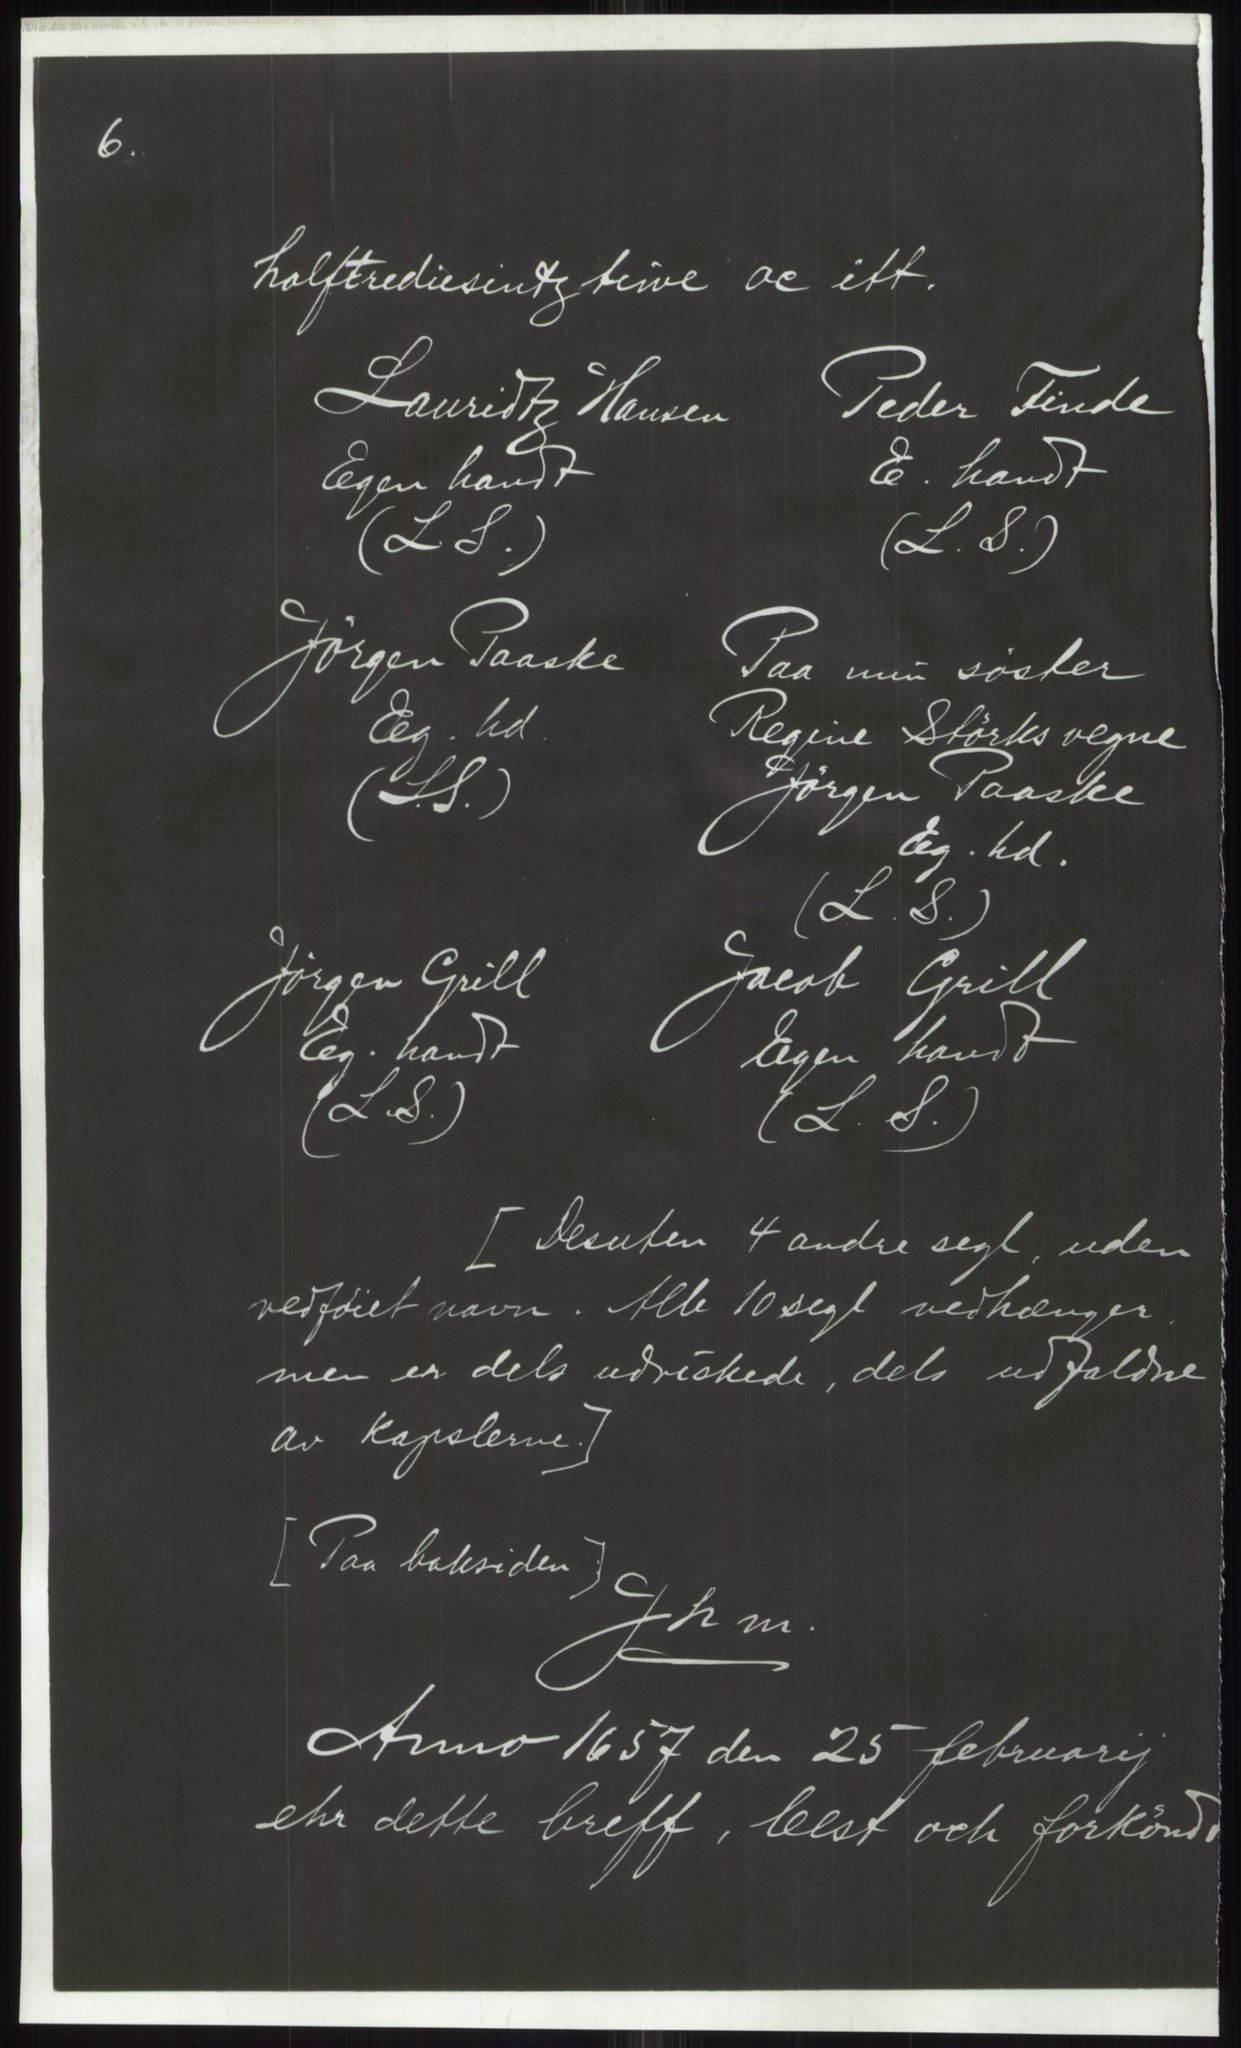 6.
halftrediesintztiuve oc itt.
Lauridtz Hansen
Egen handt
(L. S.)
Peder Finde
E. handt
(L. S.)
Jörgen Paaske
Eg. hd.
(L. S.)
Paa min söster
Regine Störks vegne
Jörgen Paaske
Eg. hd.
(L. S.)
Jörgen Grill
Eg. handt
(L. S.)
Jacob Grill
Egen handt
(L. S.)
[Desuten 4 andre segl, uden
vedföiet navn. Alle 10 segl vedhænger.
men er dels udviskede, dels udfaldne
av kapslerne.]
[Paa baksiden]
J h m.
Anno 1657 den 25 februarij
ehr dette breff, lest och forköndt